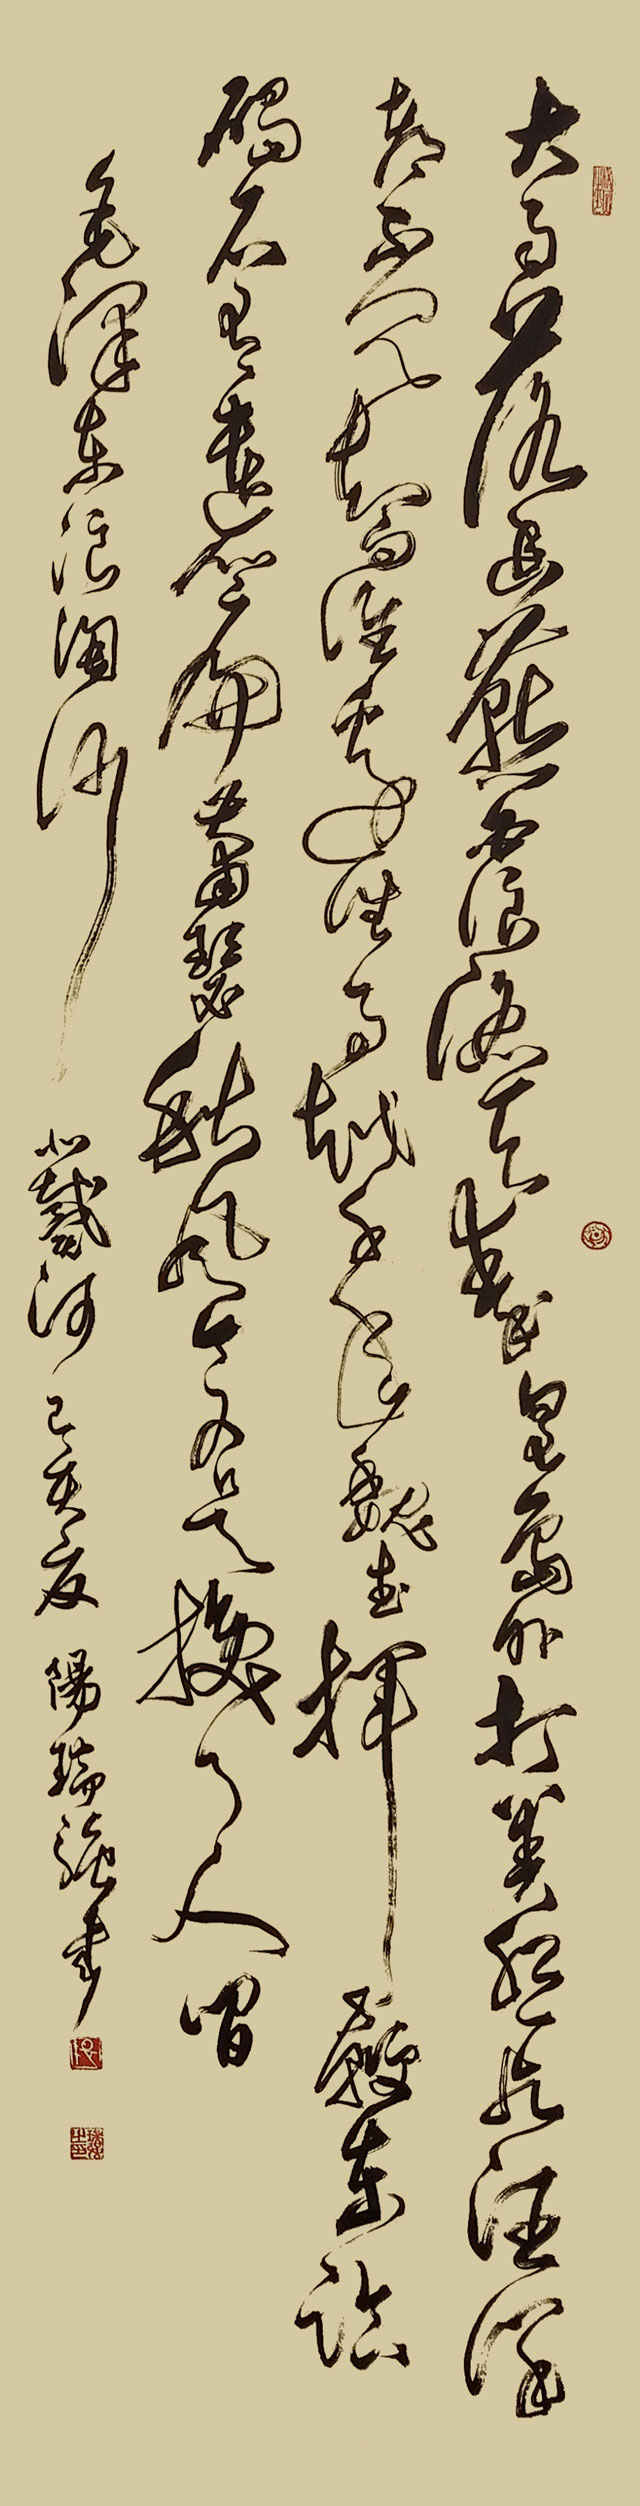 大雨落幽燕白浪滔天秦皇島外打魚船一片汪洋
都不見知向誰邊往事越千年魏武揮鞭東臨
碣石有遺篇蕭瑟秋風今又是換了人間
毛澤东浪淘沙 北戴河 己亥夏 陽瑞強書